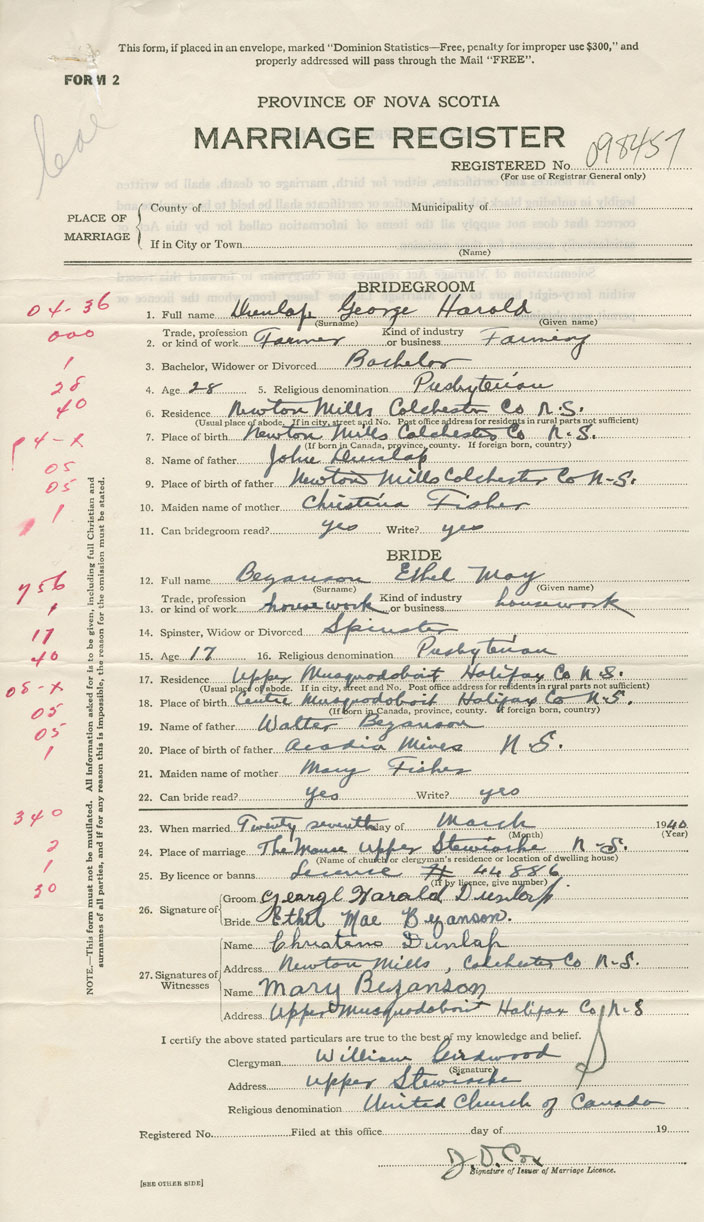 This form, if placed in an envelope, marked "Dominion Statistics—Free, penalty for improper use $300," and
properly addressed will pass through the Mail "FREE".
FORM 2
PROVINCE OF NOVA SCOTIA
MARRIAGE REGISTER
REGISTERED No. 098457
(For use of Registrar General only)
PLACE OF MARRIAGE
County of Municipality of
If in City or Town
(Name)
BRIDEGROOM
04-36
1. Full name Dunlap George Harold
(Surname) (Given name)
000
2. Trade, profession or kind of work Farmer Kind of industry or business Farming
1
3. Bachelor, Widower or Divorced Bachelor
28
4. Age 28 5. Religious denomination Presbyterian
40
6. Residence Newton Mills Colchester Co N.S.
(Usual place of abode. If in city, street and No. Post office address for residents in rural parts not sufficient)
7. Place of birth Newton Mills Colchester Co N.S.
(If born in Canada, province, county. If foreign born, country)
05
8. Name of father John Dunlap
05
9. Place of birth of father Newton Mills Colchester Co N-S.
10. Maiden name of mother Christina Fisher
1
11. Can bridegroom read? yes Write? yes
BRIDE
756
12. Full name Bezanson Ethel May
(Surname) (Given name)
1
13. Trade, profession or kind of work housework Kind of industry or business housework
17
14. Spinster, Widow or Divorced Spinster
40
15. Age 17 16. Religious denomination Presbyterian
17. Residence Upper Musquodoboit Halifax Co N.S.
(Usual place of abode. If in city, street and No. Post office address for residents in rural parts not sufficient)
05-x
18. Place of birth Centre Musquodoboit Halifax Co N-S.
(If born in Canada, province, county. If foreign born, country)
05
19. Name of father Walter Bezanson
05
20. Place of birth of father Acadia Mines N.S.
1
21. Maiden name of mother Mary Fisher
22. Can bride read? yes Write? yes
340
23. When married Twenty seventh day of March 1940
(Month) (Year)
2
24. Place of marriage The Manse Upper Stewiacke N-S.
(Name of church or clergyman's residence or location of dwelling house)
1
25. By licence or banns Licence # 44886
(If by licence, give number)
30
26. Signature of
Groom George Harold Dunlap
Bride Ethel Mae Bezanson.
27. Signatures of Witnesses
Name Dunlap
Address Newton Mills, Colchester Co N-S.
Name Mary Bezanson
Address Upper Musquodoboit Halifax Co N-S
I certify the above stated particulars are true to the best of my knowledge and belief.
Clergyman William Girdwood
(Signature)
Address Upper Stewiacke
Religious denomination United Church of Canada
Registered No. Filed at this office day of 19
J. D. Cox
Signature of Issuer of Marriage Licence.
[SEE OTHER SIDE]
NOTE.—This form must not be mutilated. All information asked for is to be given, including full Christian and
surnames of all parties, and if for any reason this is impossible, the reason for the omission must be stated.